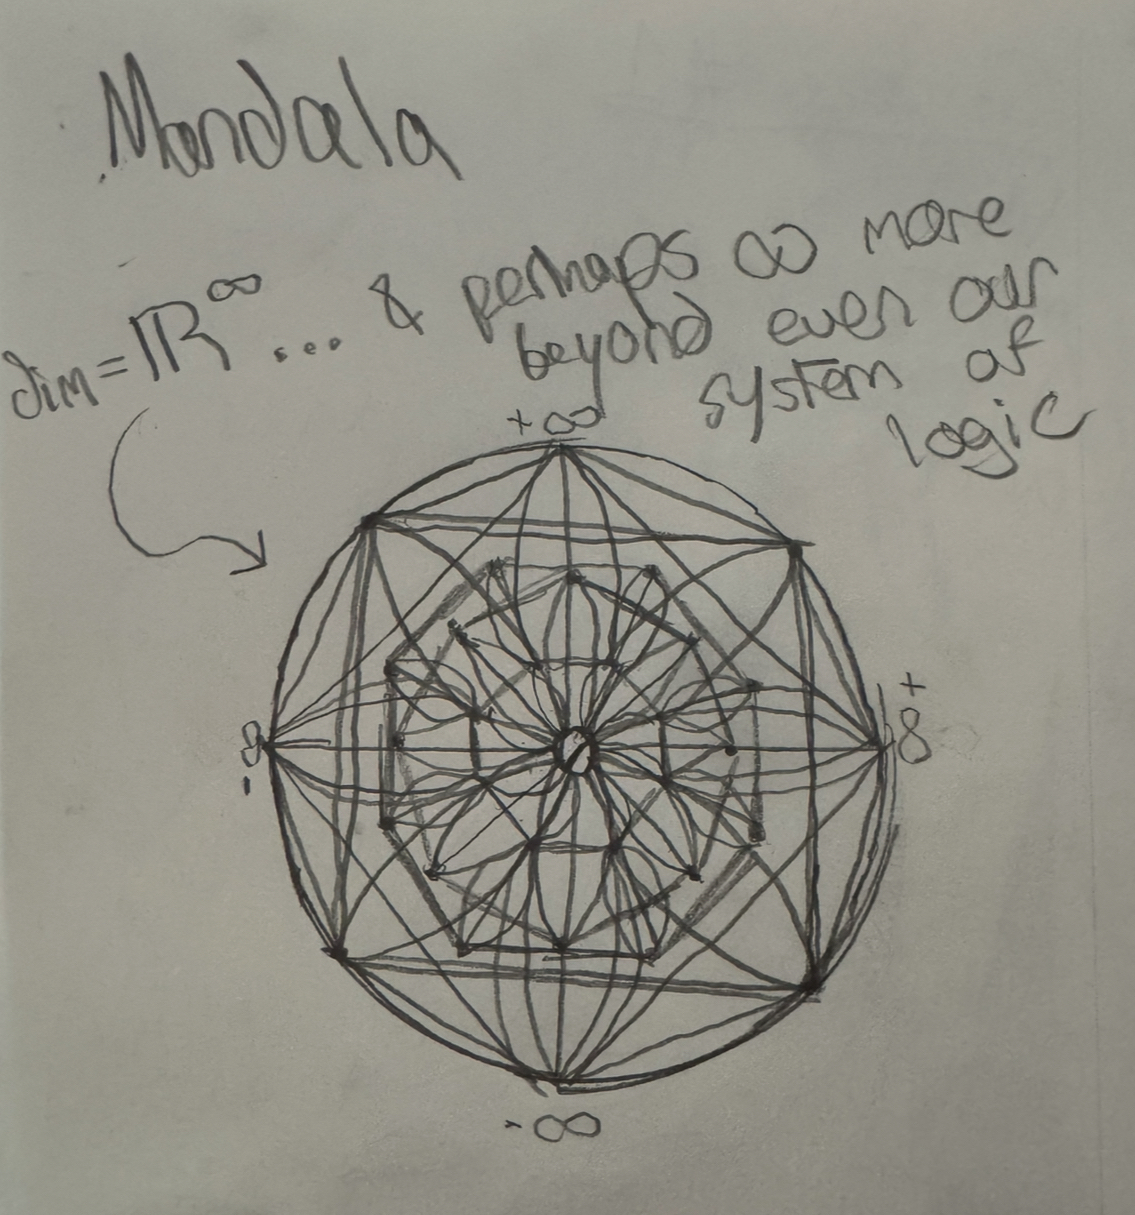 Mandala
dim = ℝ^∞ ... & perhaps ∞ more
beyond even our
system of
logic
+∞
-∞
+∞
-∞